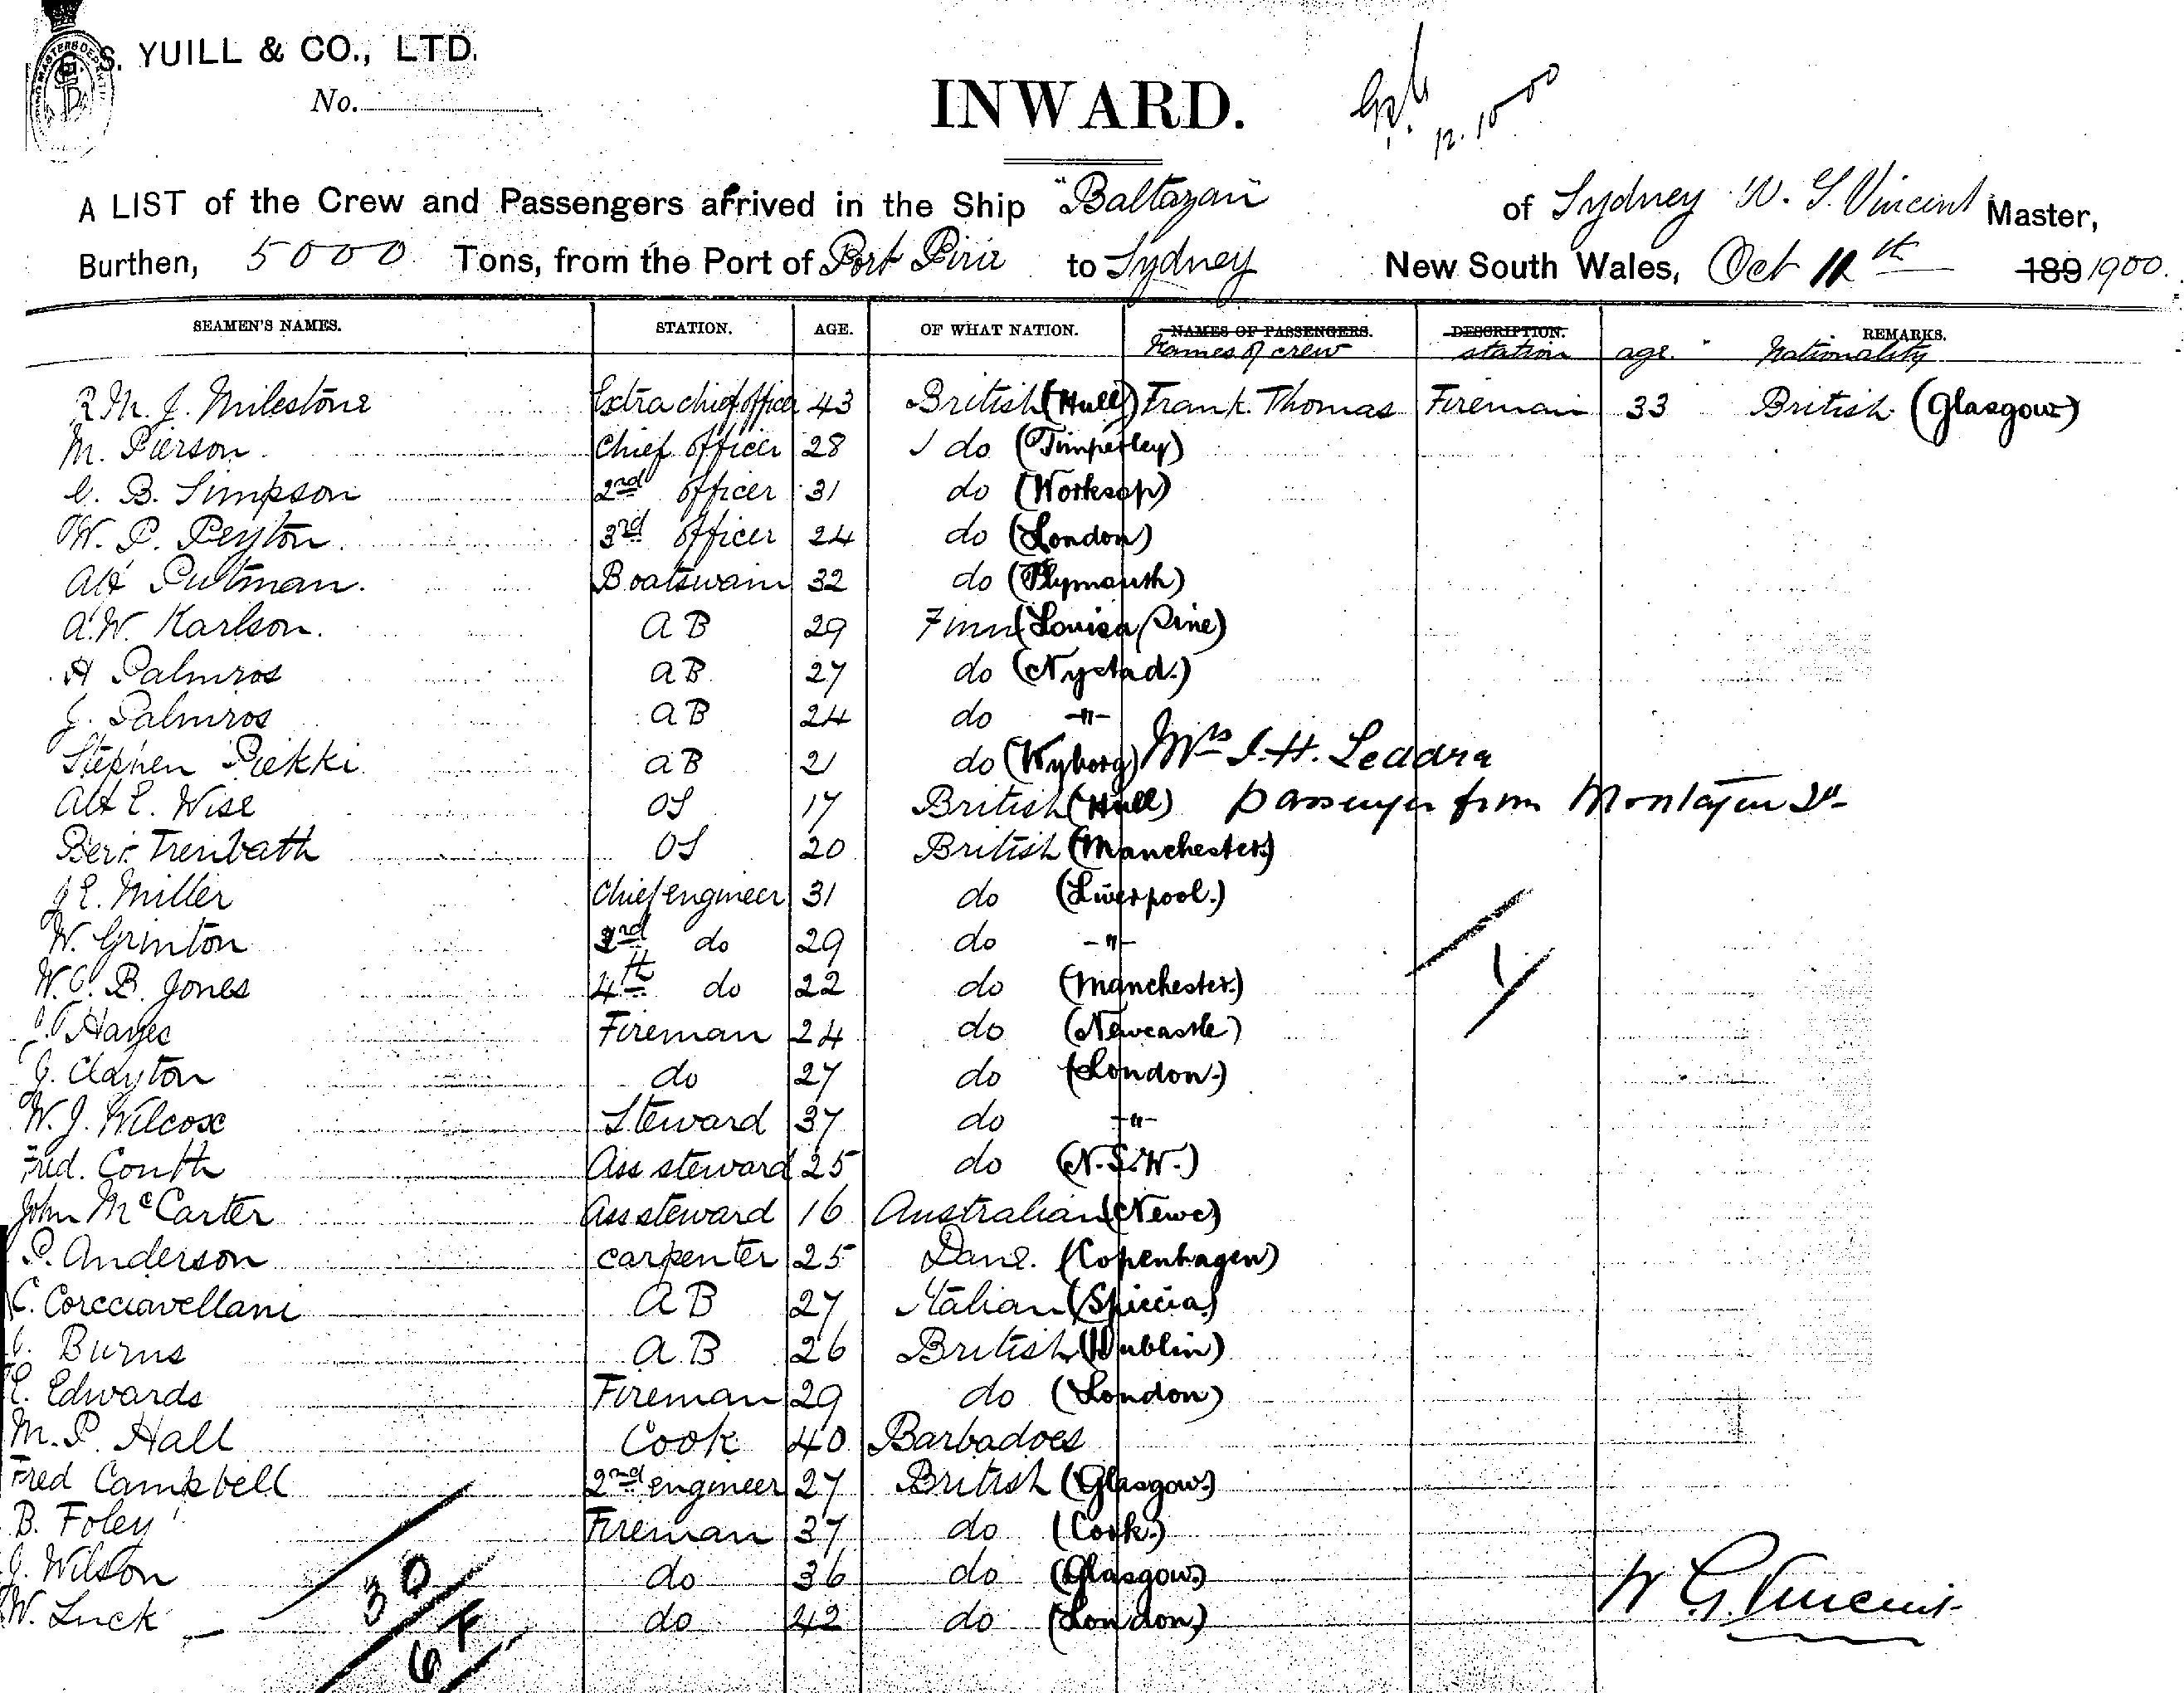 S. YUILL & CO., LTD.
No.
INWARD.
12.10.00
A LIST of the Crew and Passengers arrived in the Ship "Baltazan" of Sydney W. G. Vincent Master,
Burthen, 5000 Tons, from the Port of Port Pirie to Sydney New South Wales, Oct 12th 189 1900.
SEAMEN'S NAMES. STATION. AGE. OF WHAT NATION. NAMES OF PASSENGERS. DESCRIPTION. REMARKS.
Names of crew station age. Nationality
R M. J. Milestone Extra chief officer 43 British (Hull) Frank Thomas Fireman 33 British (Glasgow)
M. Pierson Chief officer 28 do (Timperley)
C. B. Simpson 2nd officer 31 do (Worksop)
W. P. Peyton 3rd officer 24 do (London)
Alf Putman. Boatswain 32 do (Plymouth)
A. W. Karlson. AB 29 Finn (Louisa
H Palmros AB 27 do (Nystad.)
J. Palmros AB 24 do -"-
Stephen Piekki AB 21 do (Wyborg) Mrs J. H. Leddra
Alf E. Wise OS 17 British (Hull) passenger from
Ber. Trenbath OS 20 British (Manchester)
J E. Miller Chief engineer 31 do (Liverpool.)
W. Grinton 3rd do 29 do -"-
W. C. B. Jones 4th do 22 do (Manchester.)
Hayes Fireman 24 do (Newcastle)
J. Clayton do 27 do (London.)
W. J. Wilcox Steward 37 do -"-
Fred. Couth Ass steward 25 do (N.S.W.)
John McCarter Ass steward 16 Australian (Newc)
P. Anderson carpenter 25 Dane. (Copenhagen)
C. Corcciavellani AB 27 Italian (Spiccia)
Burns A.B 26 British (Dublin)
E. Edwards Fireman 29 do (London)
M. P. Hall Cook 40 Barbadoes
Fred Campbell 2nd engineer 27 British (Glasgow)
B. Foley Fireman 37 do (Cork.)
J. Wilson do 36 do (Glasgow)
W. Luck do 42 do (London)
30
W G. Vincent